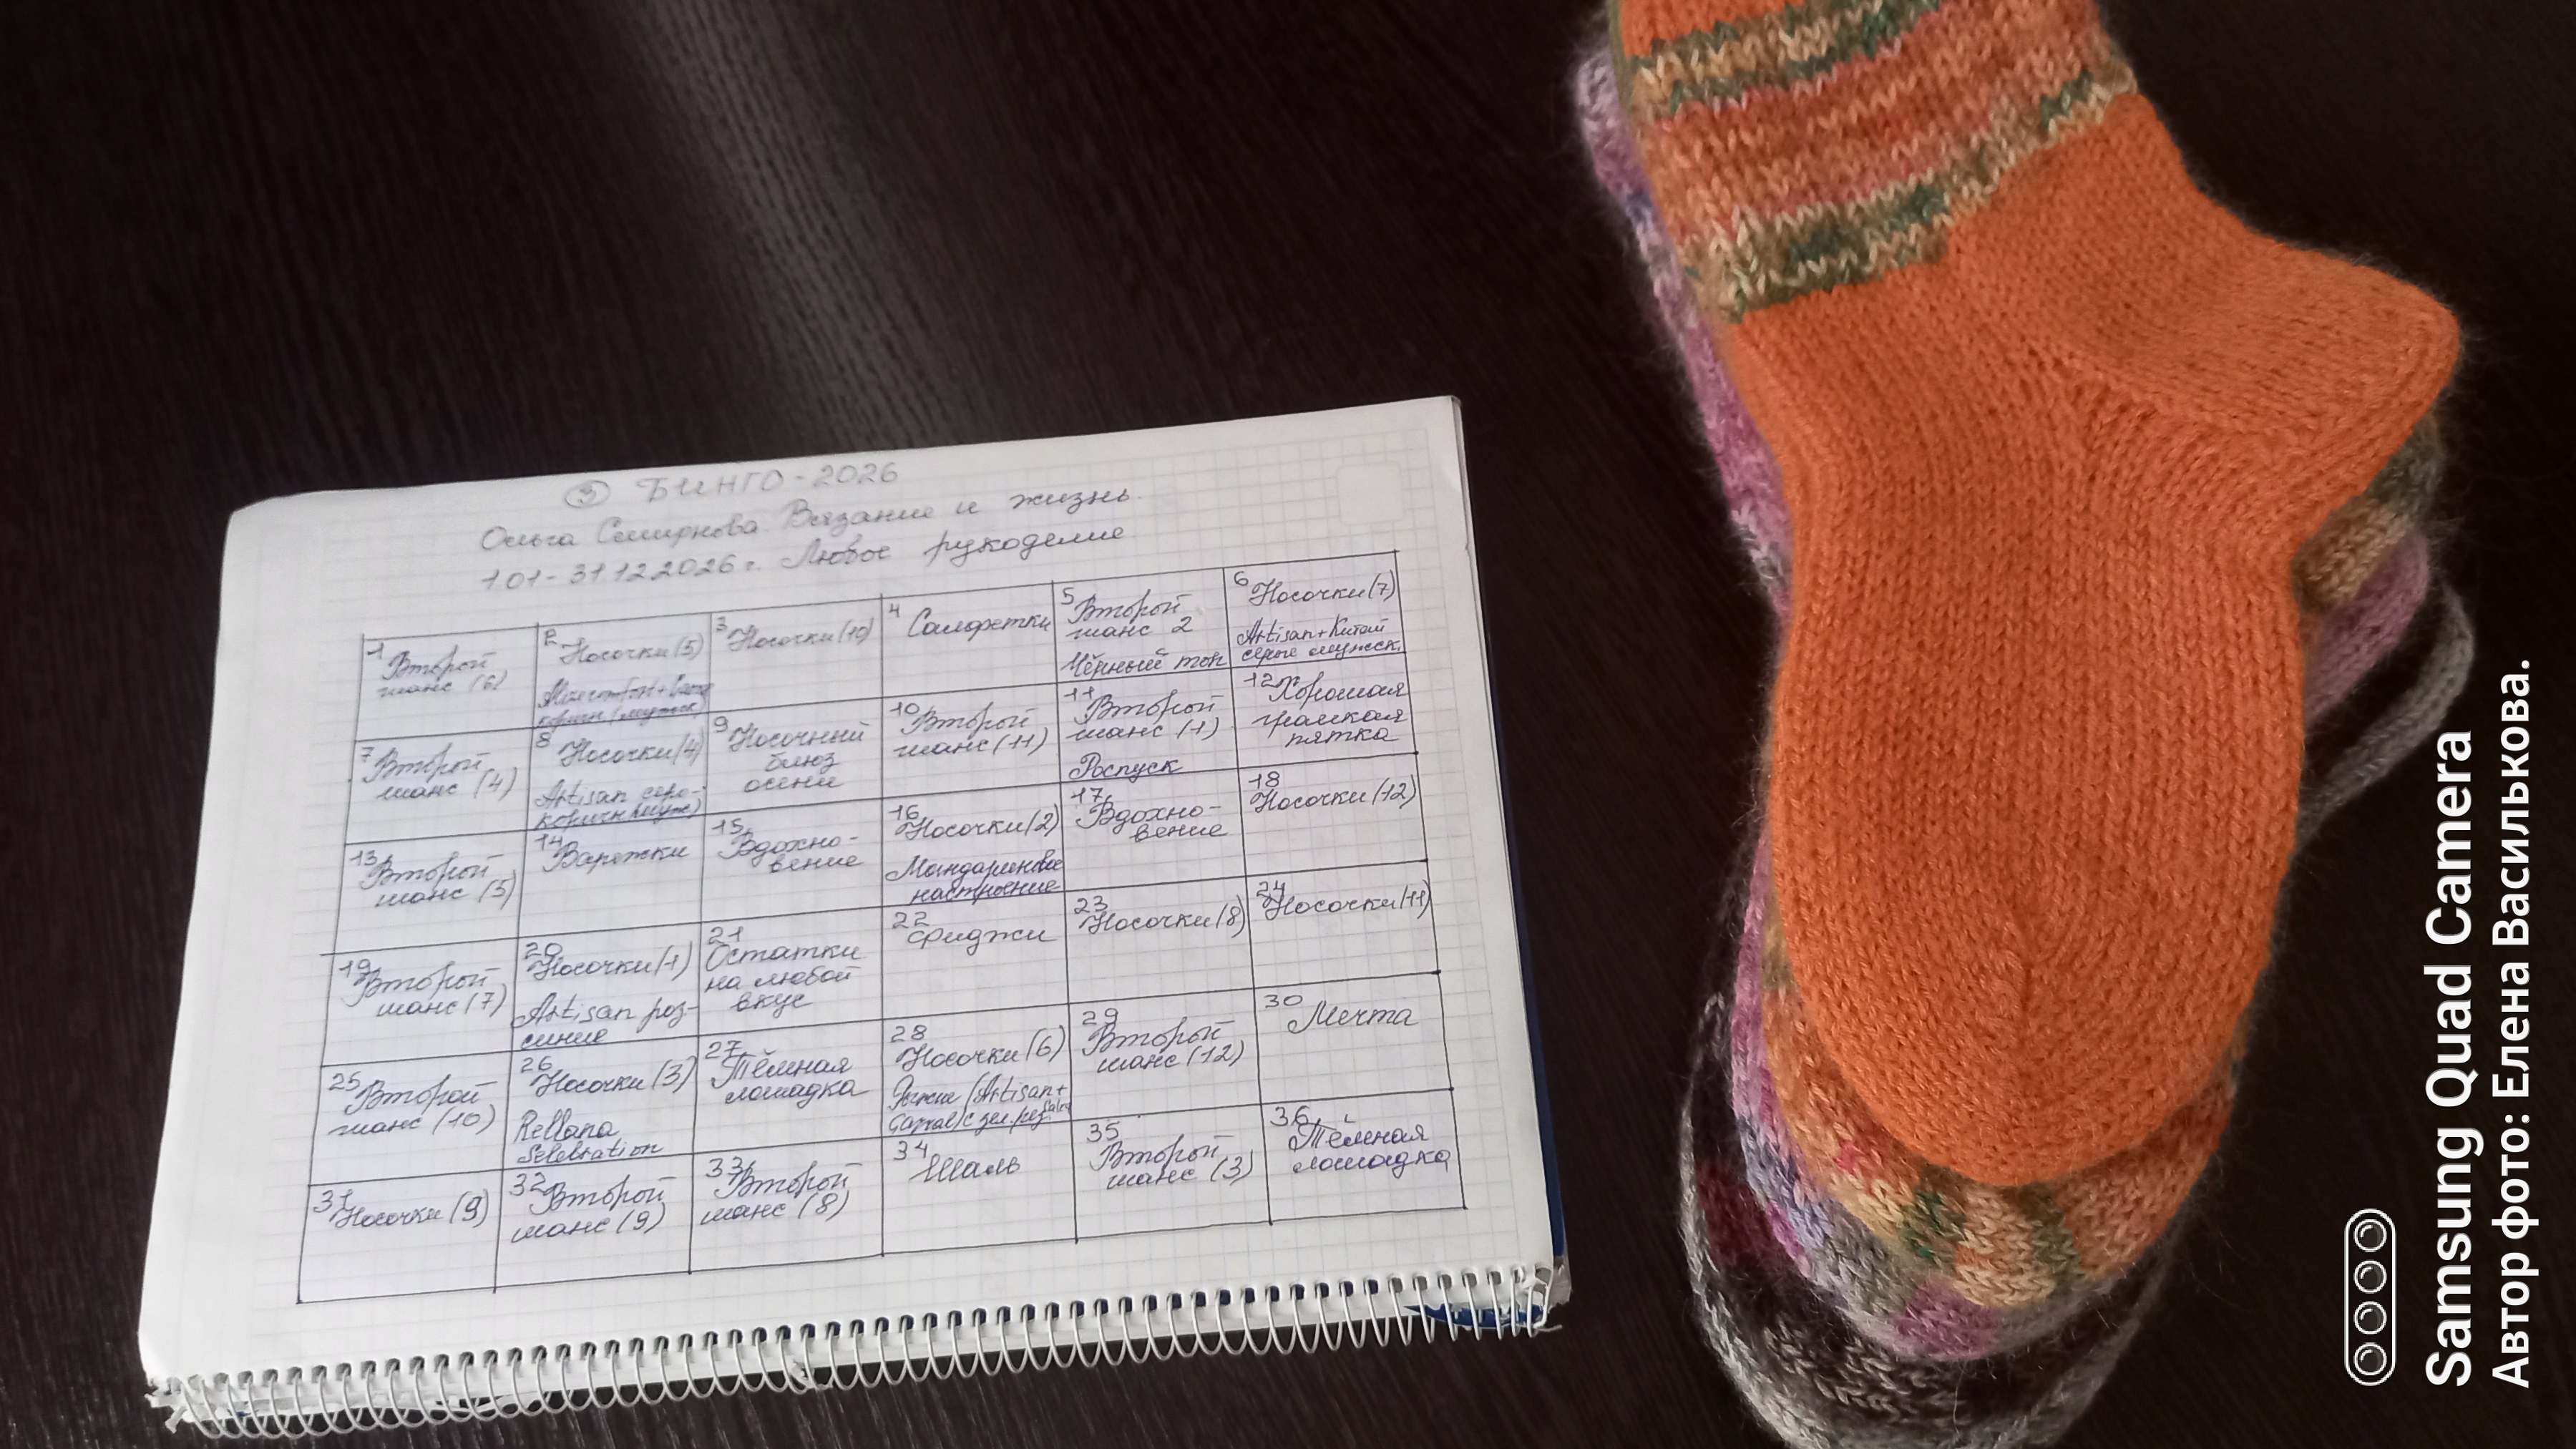 ③ БИНГО - 2026
Ольга Смирнова. Вязание и жизнь.
1.01 - 31.12.2026 г. Любое рукоделие
1 Второй
шанс (6)
2 Носочки (5)
коричн. (мужск)
3 Носочки (10)
4 Салфетки
5 Второй
шанс 2
Чёрный топ
6 Носочки (7)
Artisan + Китай
серые мужск.
7 Второй
шанс (4)
8 Носочки (4)
Artisan серо-
коричн. (мужс)
9 Носочный
блюз
осени
10 Второй
шанс (11)
11 Второй
шанс (1)
Роспуск
12 Хорошая
громкая
пятка
13 Второй
шанс (5)
14 Варежки
15 Вдохно-
вение
16 Носочки (2)
Мандариновое
настроение
17 Вдохно-
вение
18 Носочки (12)
19 Второй
шанс (7)
20 Носочки (1)
Artisan роз-
синие
21 Остатки
на любой
вкус
22 Фиджи
23 Носочки (8)
24 Носочки (11)
25 Второй
шанс (10)
26 Носочки (3)
Rellana
Selebration
27 Тёмная
лошадка
28 Носочки (6)
Рыжие (Artisan +
с зел. рез
29 Второй
шанс (12)
30 Мечта
31 Носочки (9)
32 Второй
шанс (9)
33 Второй
шанс (8)
34 Шаль
35 Второй
шанс (3)
36 Тёмная
лошадка
Samsung Quad Camera
Автор фото: Елена Василькова.